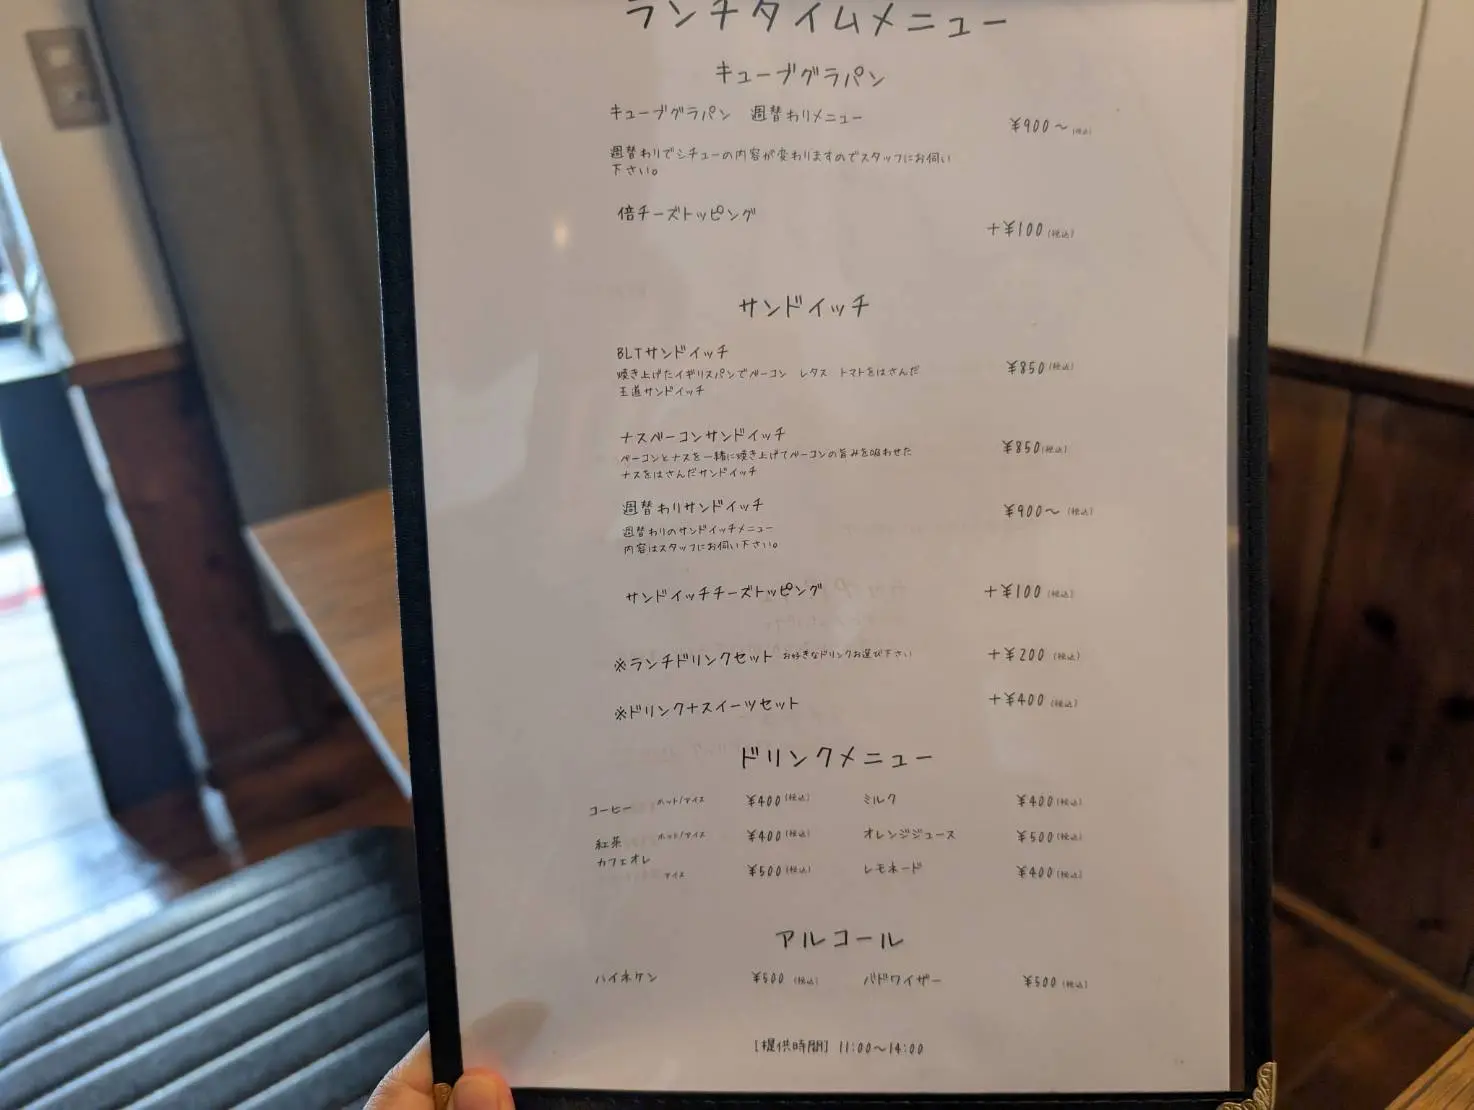 ランチタイムメニュー
キューブグラパン
キューブグラパン 週替わりメニュー ¥900～(税込)
週替わりでシチューの内容が変わりますのでスタッフにお伺い
下さい。
倍チーズトッピング +¥100(税込)
サンドイッチ
BLTサンドイッチ ¥850(税込)
焼き上げたイギリスパンでベーコン レタス トマトをはさんだ
王道サンドイッチ
ナスベーコンサンドイッチ ¥850(税込)
ベーコンとナスを一緒に焼き上げてベーコンの旨みを吸わせた
ナスをはさんだサンドイッチ
週替わりサンドイッチ ¥900～(税込)
週替わりのサンドイッチメニュー
内容はスタッフにお伺い下さい。
サンドイッチチーズトッピング +¥100(税込)
※ランチドリンクセット お好きなドリンクお選び下さい +¥200(税込)
※ドリンク+スイーツセット +¥400(税込)
ドリンクメニュー
コーヒー ホット/アイス ¥400(税込) ミルク ¥400(税込)
紅茶 ホット/アイス ¥400(税込) オレンジジュース ¥500(税込)
カフェオレ アイス ¥500(税込) レモネード ¥400(税込)
アルコール
ハイネケン ¥500(税込) バドワイザー ¥500(税込)
[提供時間] 11:00～14:00